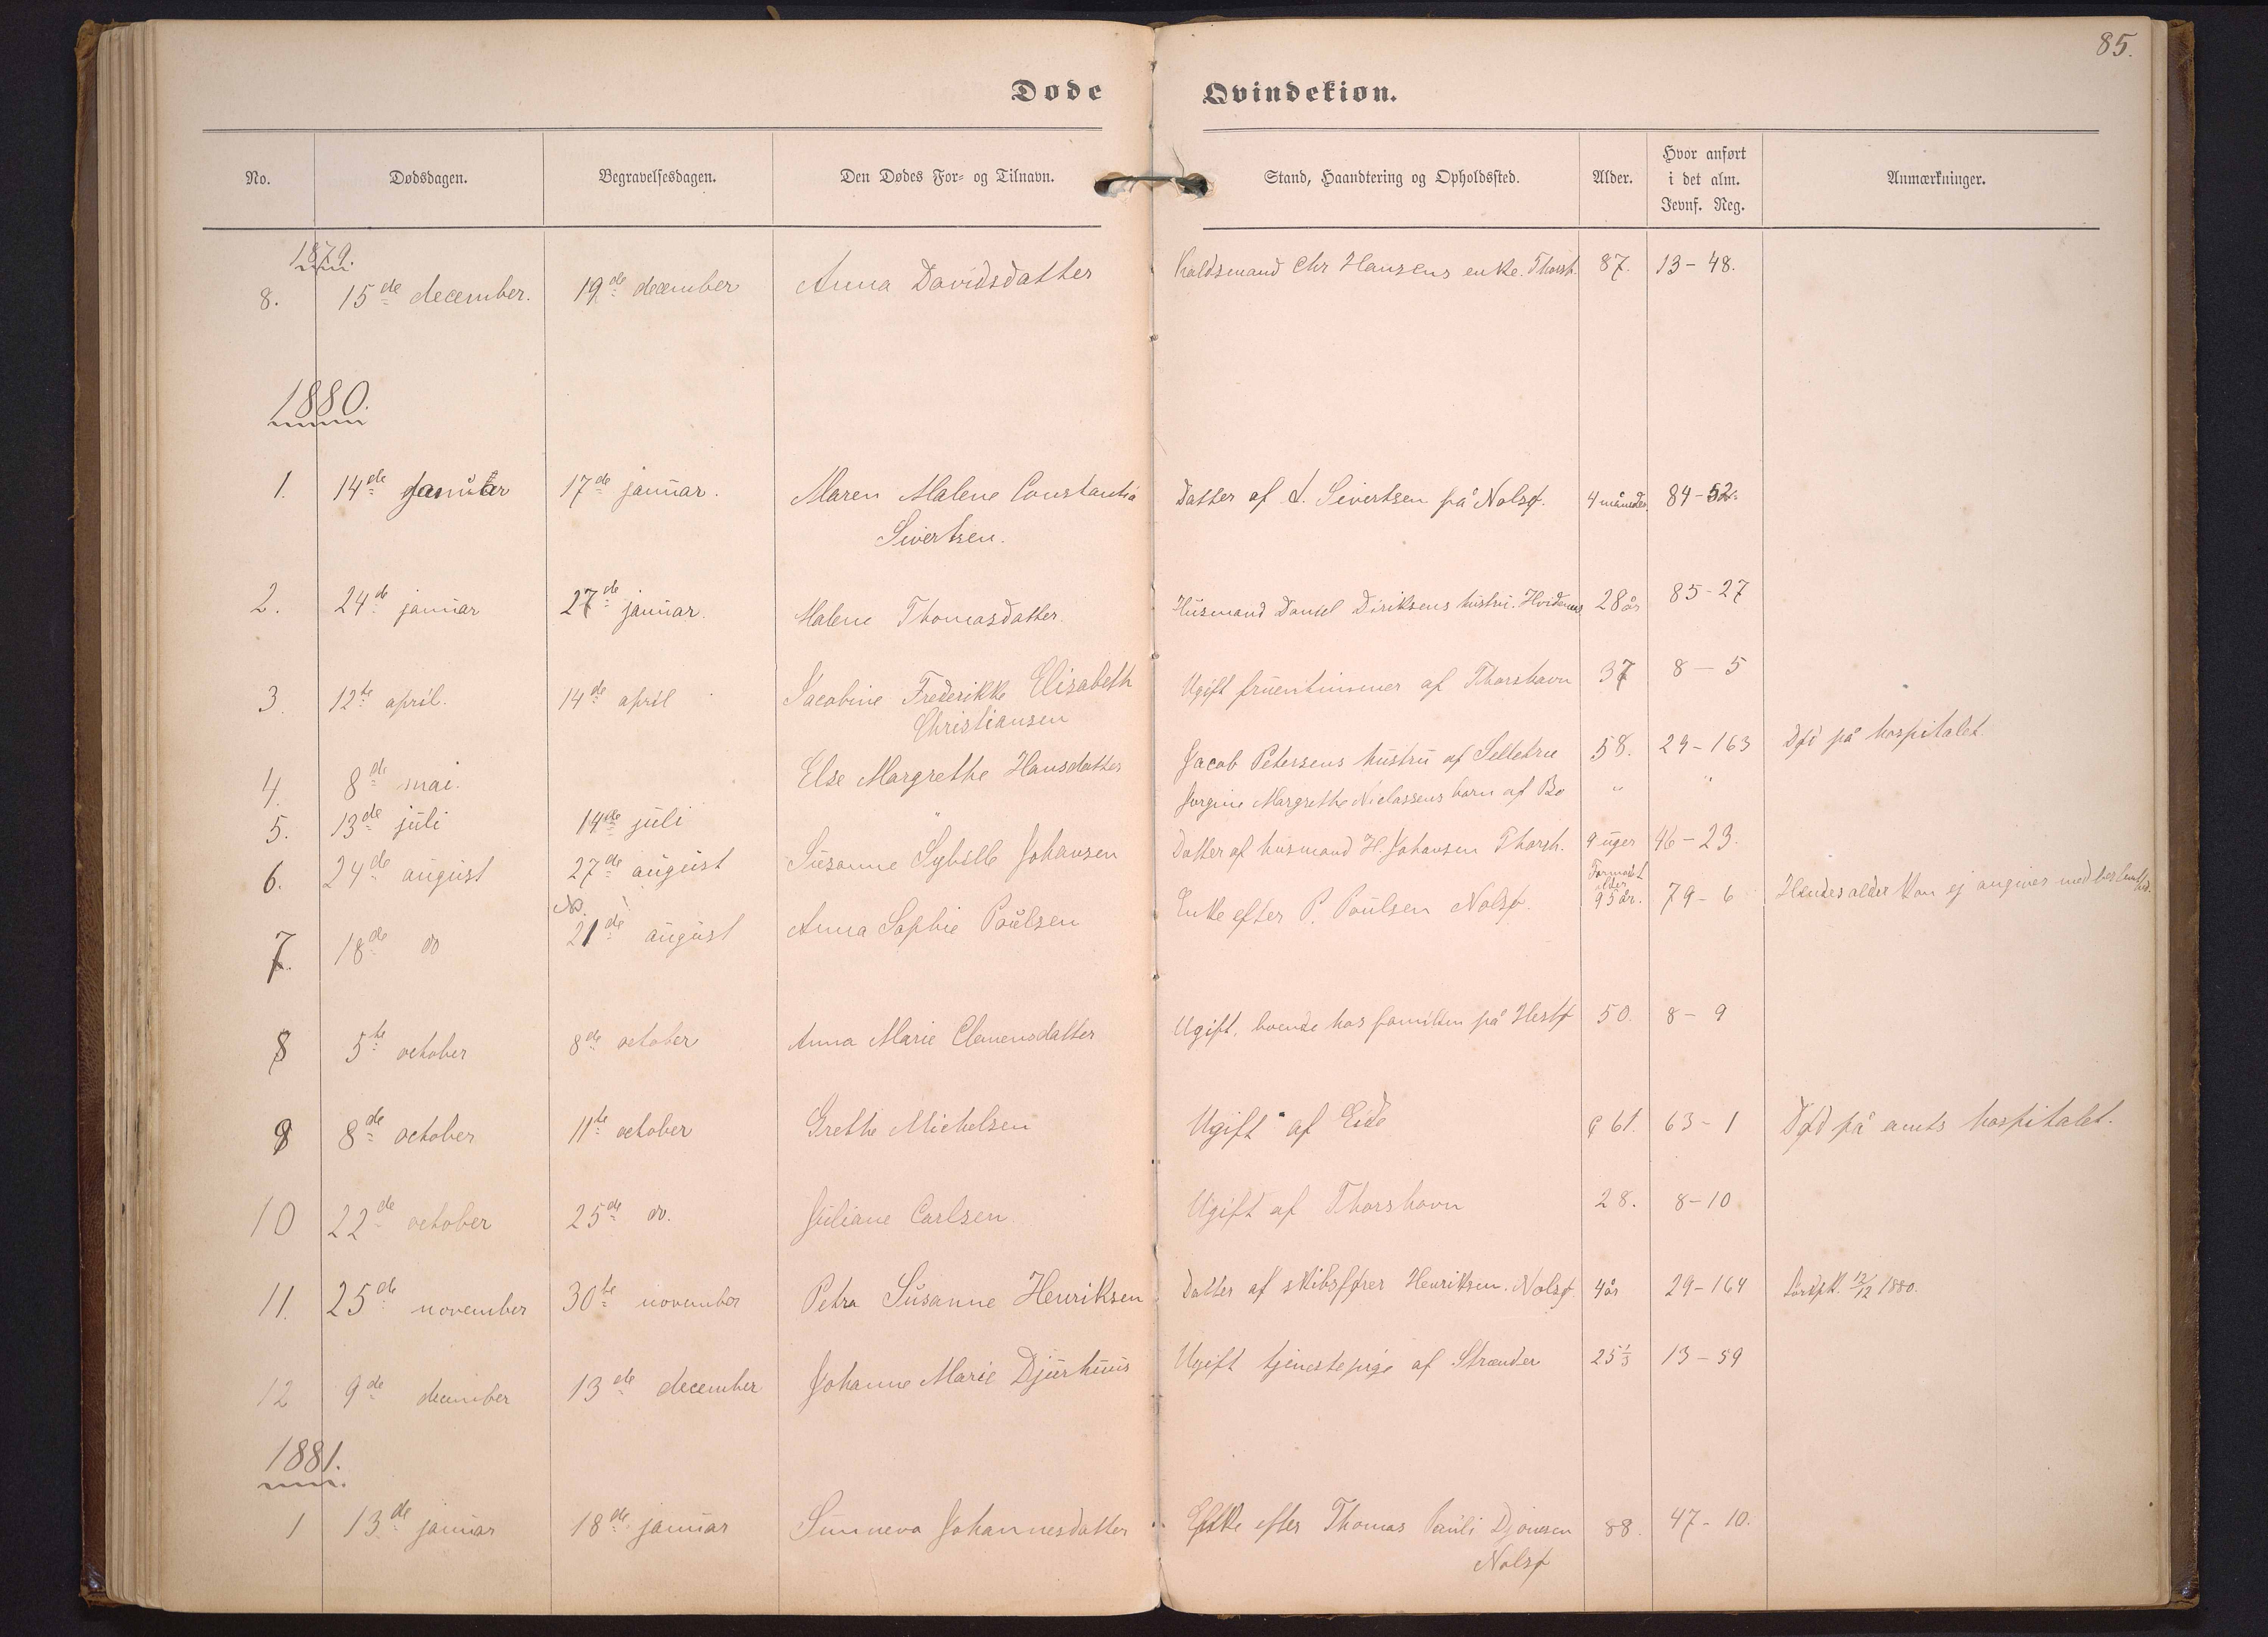 85.
Døde Qvindekiøn.
No. Dødsdagen. Begravelsesdagen. Den Dødes For- og Tilnavn. Stand, Haandtering og Opholdssted. Alder. Hvor anført i det alm. Jevnf. Reg. Anmærkninger.
1879.
8. 15de december. 19de december Anna Davidsdatter Chr Hansens enke. Thorsh. 87. 13-48.
1880.
1. 14de Januar 17de januar. Maren Malene Constantia Datter af J. Sivertsen på Nolsø. 4 måneder. 84-52.
Sivertsen.
2. 24de januar 27de januar. Malene Thomasdatter. Husmand Daniel Diriksens hustru. Hvidenæs 28 år 85-27
3. 12te april. 14de april Jacobine Frederikke Elisabeth Ugift fruentimmer af Thorshavn 37 8-5
Christiansen
4. 8de mai. Else Margrethe Hansdatter Jacob Petersens hustru af Selletræ 58. 29-163 Død på hospitalet.
5. 13de juli 14de juli " Jorgine Margrethe Niclassens barn af Bø " "
6. 24de august 27de august Susanne Sybille Johansen Datter af husmand H. Johansen Thorsh. 9 uger 46-23.
7. 18de do NB. 21de august Anna Sophie Poulsen Enke efter P. Poulsen Nolsø. Formodet alder 95 år. 79-6 Hendes alder kan ej angives med bestemthed.
8 5te october 8de october Anna Marie Clemensdatter Ugift, boende hos familien på Hestø 50. 8-9
9 8de october 11te october Grethe Michelsen Ugift af Eide 61. 63-1 Død på amts hospitalet.
10 22de october 25de do. Juliane Carlsen. Ugift af Thorshavn 28. 8-10
11. 25de november 30te november Petra Susanne Henriksen Datter af skibsfører Henriksen. Nolsø. 4 år 29-164 12/12 1880.
12 9de december 13de december Johanne Marie Djurhuus Ugift tjenestepige af Strænder 25 1/3 13-59
1881.
1 13de januar 18de januar Sunneva Johannesdatter Enke efter Thomas Pauli Djonesen 88. 47-10.
Nolsø